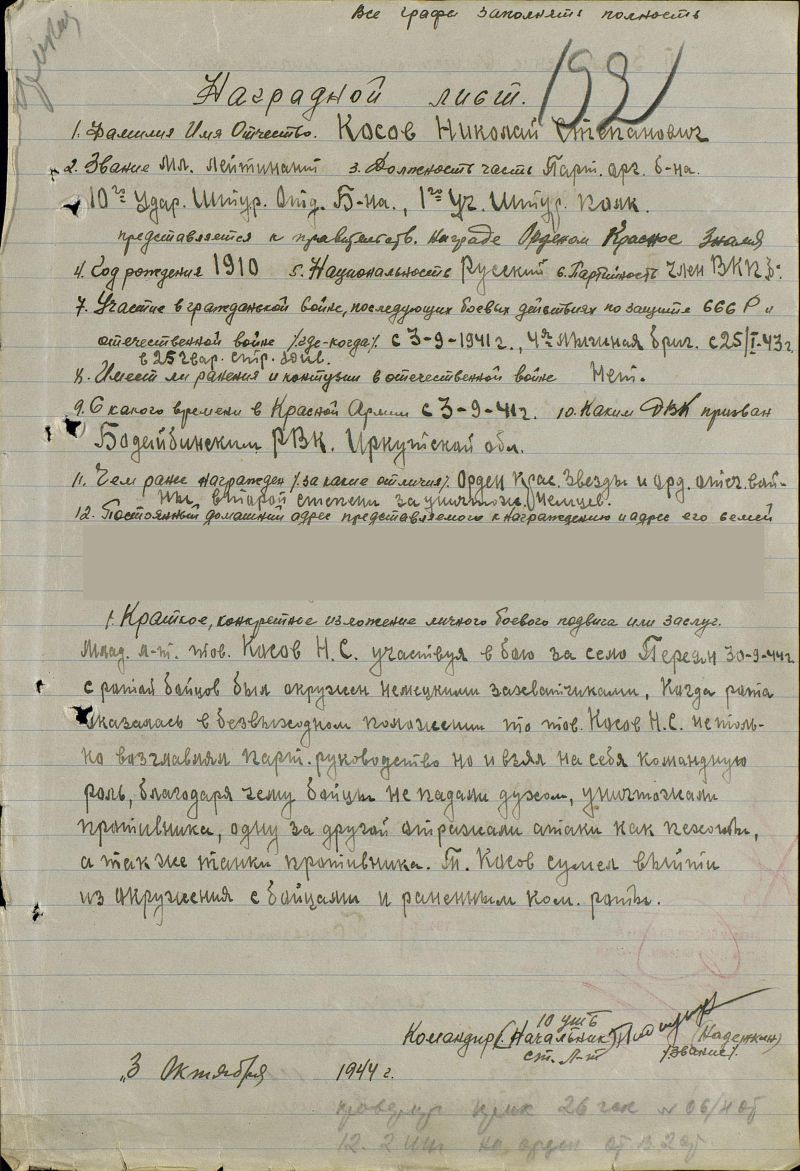 Все графы заполнять полность
192
Наградной лист.
1. Фамилия Имя Отчество. Косов Николай Степанович
2. Звание Мл. Лейтинант 3. Должность часть Парт. орг. б-на.
10го Удар. Штур. Отд. Б-на., 1го Уч. Штур. полк.
представляется к правительств. награде Орденом Красное Знамя
4. Год рождения 1910 5. Национальность Русский 6. Партийность член ВКПБ:
7. Участие в гражданской войне, последующих боевых действиях по защите СССР и
отечественной войне /где-когда/ с 3-9-1941 г., 4я Лыжная бриг. с 25/I-43г.
в 25 гвар. стр. див.
8. Имеет ли ранения и контузии в отечественной войне Нет.
9. С какого времени в Красной Армии с 3-9-41г. 10. Каким РВК призван
Бодейбинским РВК. Иркутской обл.
11. Чем ранее награжден /за какие отличия/. Орден Крас. Звезды и орд. отеч. вой-
ны, второй степени за уничтож. немцев.
12. Постоянный домашний адрес представляемого к награждению и адрес его семей
1. Краткое, конкретное изложение личного боевого подвига или заслуг.
Млад. л-т. тов. Косов Н.С. участвуя в бою за село Переям 30-9-44г.
с ротай бойцов был окружен немецкими захватчиками, Когда рота
оказалась в безвыходном положении то тов. Косов Н.С. не толь-
ко возглавлял парт. руководство но и взял на себя командную
роль, благодаря чему бойцы не падали духом, уничтожали
противника, одну за другой отражали атаки как пехоты,
а так же танки противника. Т. Косов сумел выйти
из окружения с бойцами и раненным ком. роты.
10 ушб
Командир (Начальник) (Надежкин)
ст. Л-т /звание/.
"3 Октября 1944 г.
26 гск № 06/н от